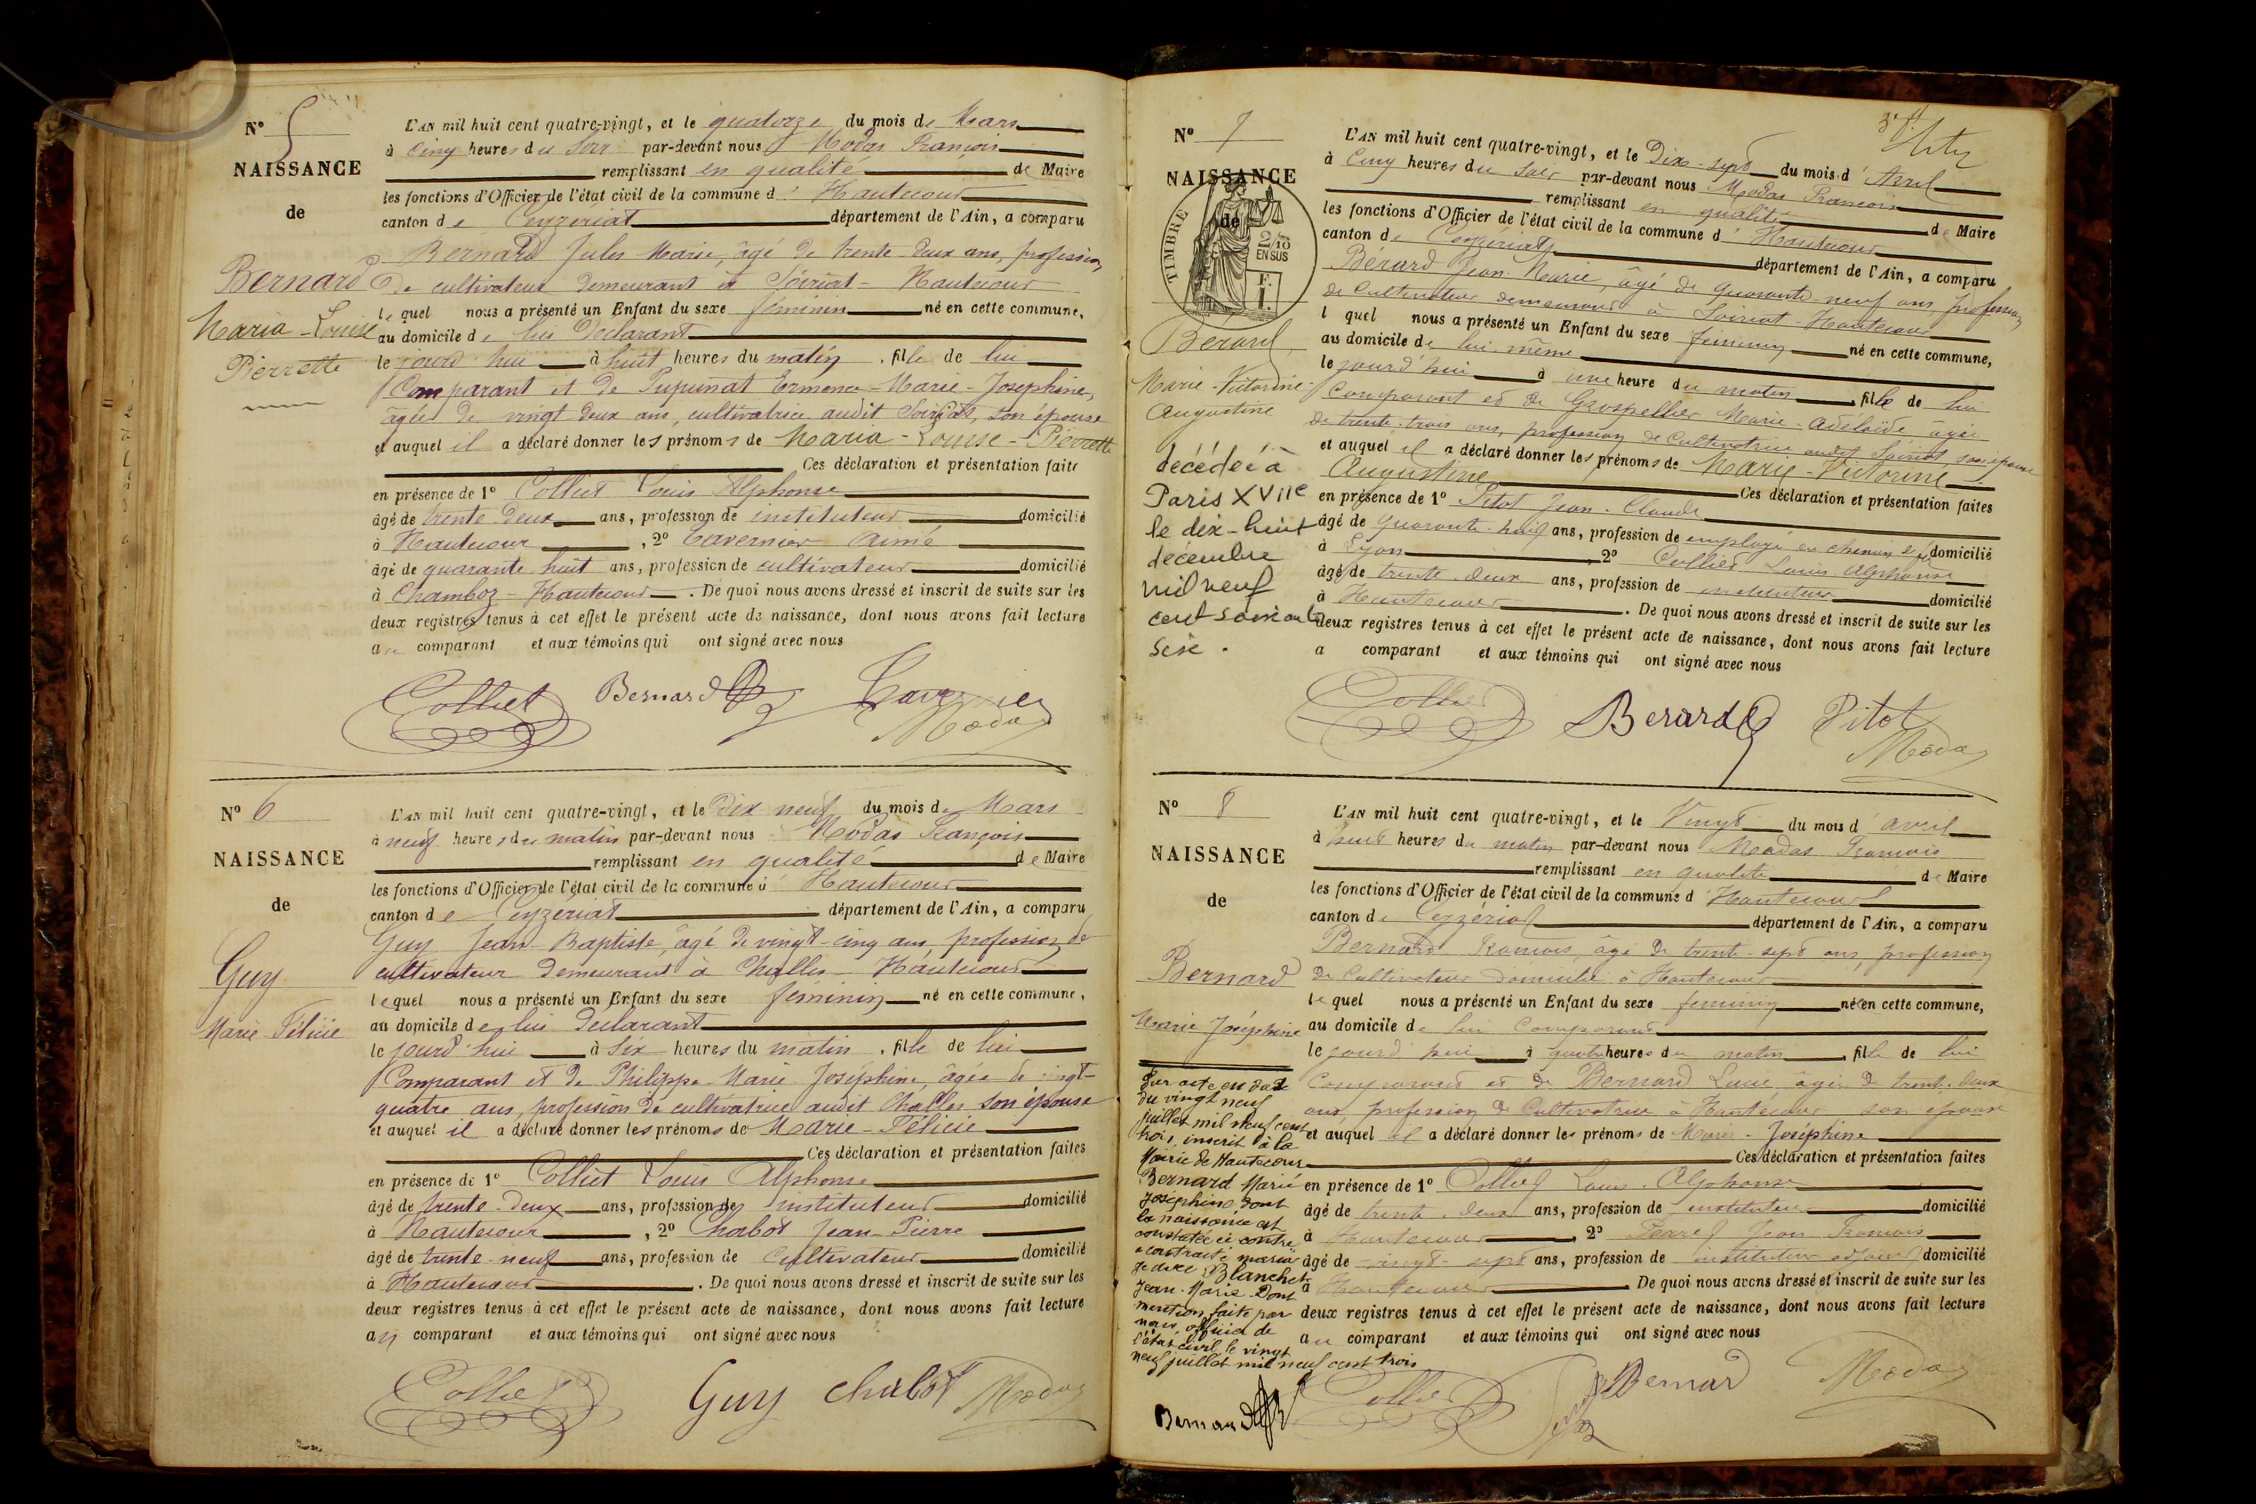 N° 5
NAISSANCE
de
Bernard
Maria-Louise
Pierrette
L'AN mil huit cent quatre-vingt, et le quatorze du mois de Mars
à cinq heures du soir par-devant nous Modas François
remplissant en qualité de Maire
les fonctions d'Officier de l'état civil de la commune d' Hautecour
canton de Ceyzeriat département de l'Ain, a comparu
Bernard Jules Marie, âgé de trente deux ans, profession
de cultivateur demeurant à Soiriat - Hautecour
lequel nous a présenté un Enfant du sexe féminin né en cette commune,
au domicile de lui déclarant
le jourd'hui à huit heures du matin, fille de lui
Comparant et de Pupunat Ermence-Marie-Josephine,
âgée de vingt deux ans, cultivatrice audit Soiriat, son épouse
et auquel il a déclaré donner les prénoms de Maria-Louise-Pierrette
Ces déclaration et présentation faite
en présence de 1° Colliet Louis Alphonse
âgé de trente deux ans, profession de instituteur domicilié
à Hautecour, 2° Tavernier Aimé
âgé de quarante huit ans, profession de cultivateur domicilié
à Chamboz - Hautecour. De quoi nous avons dressé et inscrit de suite sur les
deux registres tenus à cet effet le présent acte de naissance, dont nous avons fait lecture
au comparant et aux témoins qui ont signé avec nous
Colliet Bernard Tavernier
Modas
N° 6
NAISSANCE
de
Guy
Marie-Félicie
L'AN mil huit cent quatre-vingt, et le Dix neuf du mois de Mars
à neuf heures du matin par-devant nous Modas François
remplissant en qualité de Maire
les fonctions d'Officier de l'état civil de la commune d' Hautecour
canton de Ceyzeriat département de l'Ain, a comparu
Guy Jean-Baptiste, âgé de vingt-cinq ans, profession de
cultivateur demeurant à Challes - Hautecour
lequel nous a présenté un Enfant du sexe féminin né en cette commune,
au domicile de lui déclarant
le jourd'hui à six heures du matin, fille de lui
Comparant et de Philippe Marie Joséphine, âgée de vingt-
quatre ans, profession de cultivatrice audit Challes son épouse
et auquel il a déclaré donner les prénoms de Marie-Félicie
Ces déclaration et présentation faites
en présence de 1° Colliet Louis Alphonse
âgé de trente-deux ans, profession de instituteur domicilié
à Hautecour, 2° Chabot Jean-Pierre
âgé de trente-neuf ans, profession de Cultivateur domicilié
à Hautecour. De quoi nous avons dressé et inscrit de suite sur les
deux registres tenus à cet effet le présent acte de naissance, dont nous avons fait lecture
au comparant et aux témoins qui ont signé avec nous
Colliet Guy Chabot Modas
N° 7
NAISSANCE
de
TIMBRE
2/10
EN SUS
F.
1.
Bérard
Marie-Victorine-
Augustine
décédée à
Paris XVIIe
le dix-huit
décembre
mil neuf
cent soixante
six.
L'AN mil huit cent quatre-vingt, et le Dix-sept du mois d'Avril
à Cinq heures du soir par-devant nous Modas François
remplissant en qualité de Maire
les fonctions d'Officier de l'état civil de la commune d' Hautecour
canton de Ceyzériat département de l'Ain, a comparu
Bérard Jean-Marie, âgé de quarante-neuf ans, profession
de Cultivateur demeurant à Soiriat-Hautecour
l quel nous a présenté un Enfant du sexe féminin né en cette commune,
au domicile de lui-même
le jourd'hui à une heure du matin, fille de lui
Comparant et de Grospellier Marie-Adélaïde âgée
de trente-trois ans, profession de Cultivatrice audit Soiriat, son épouse
et auquel il a déclaré donner les prénoms de Marie-Victorine
Augustine Ces déclaration et présentation faites
en présence de 1° Pitot Jean-Claude
âgé de quarante-huit ans, profession de employé en chemin de fer domicilié
à Lyon 2° Colliet Louis Alphonse
âgé de trente-deux ans, profession de instituteur domicilié
à Hautecour. De quoi nous avons dressé et inscrit de suite sur les
deux registres tenus à cet effet le présent acte de naissance, dont nous avons fait lecture
a comparant et aux témoins qui ont signé avec nous
Colliet Berard Pitot
Modas
N° 8
NAISSANCE
de
Bernard
Marie Joséphine
Par acte en date
du vingt neuf
juillet mil neuf cent
trois, inscrit à la
Mairie de Hautecour
Bernard Marie
Joséphine dont
la naissance est
constatée ci contre
a contracté mariage
avec Blanchet
Jean-Marie. Dont
mention faite par
nous, officier de
l'état civil, le vingt
neuf juillet mil neuf cent trois
Bernard
L'AN mil huit cent quatre-vingt, et le Vingt du mois d'avril
à huit heures du matin par-devant nous Modas François
remplissant en qualité de Maire
les fonctions d'Officier de l'état civil de la commune d' Hautecour
canton de Ceyzériat département de l'Ain, a comparu
Bernard François, âgé de trente-sept ans, profession
de Cultivateur domicilié à Hautecour
lequel nous a présenté un Enfant du sexe féminin née en cette commune,
au domicile de lui Comparant
le jourd'hui à quatre heures du matin, fille de lui
Comparant et de Bernard Lucie, âgée de trente-deux
ans, profession de Cultivatrice à Hautecour son épouse
et auquel il a déclaré donner les prénoms de Marie-Joséphine
Ces déclaration et présentation faites
en présence de 1° Colliet Louis-Alphonse
âgé de trente-deux ans, profession de instituteur domicilié
à Hautecour, 2° Jean François
âgé de vingt-sept ans, profession de instituteur adjoint domicilié
à Hautecour. De quoi nous avons dressé et inscrit de suite sur les
deux registres tenus à cet effet le présent acte de naissance, dont nous avons fait lecture
au comparant et aux témoins qui ont signé avec nous
Colliet Bernard Modas